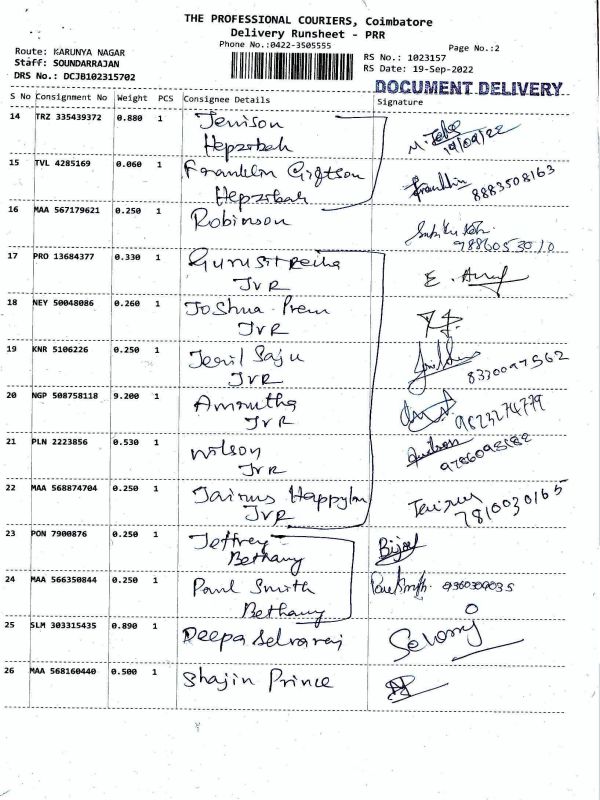 THE PROFESSIONAL COURIERS, Coimbatore
Delivery Runsheet - PRR
Phone No.:0422-3505555
Page No.:2
Route: KARUNYA NAGAR
Staff: SOUNDARRAJAN
DRS No.: DCJB102315702
RS No.: 1023157
RS Date: 19-Sep-2022
DOCUMENT DELIVERY
S No Consignment No Weight PCS Consignee Details Signature
14 TRZ 335439372 0.880 1 Jenison
Hepzibah
19/09/22
15 TVL 4285169 0.060 1 Franklin Giftson
Hepzibah
Franklin 8883508163
16 MAA 567179621 0.250 1 Robinson
9886053010
17 PRO 13684377 0.330 1
JVR
E.
18 NEY 50048086 0.260 1 Joshua Prem
JVR
19 KNR 5106226 0.250 1 Jeril Saju
JVR
8330097562
20 NGP 508758118 9.200 1 Amrutha
JVR
9623274779
21 PLN 2223856 0.530 1 Wilson
JVR
22 MAA 568874704 0.250 1 Jairus Happylin
JVR
7810030165
23 PON 7900876 0.250 1 Jeffrey
Bethany
24 MAA 566350844 0.250 1 Paul Smith
Bethany
Paul Smith 9360309035
25 SLM 303315435 0.890 1 Deepa Selvaraj
26 MAA 568160440 0.500 1 Shajin Prince